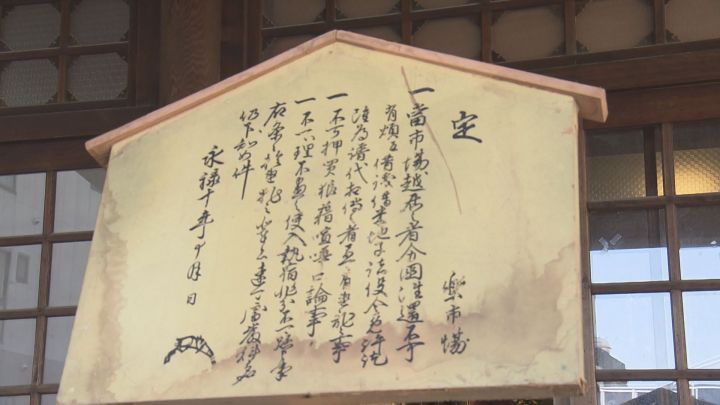 定
樂市場
一當市場越居之者分國往還不可
有煩并借銭借米地子諸役令免許訖
雖為譜代相傳之者不可有違乱事
一不可押買狼藉喧嘩口論事
一不可理不盡之使入執宿非分不可懸事
右条々於違犯之輩者速可處嚴科者也
仍下知如件
永禄十年十月日